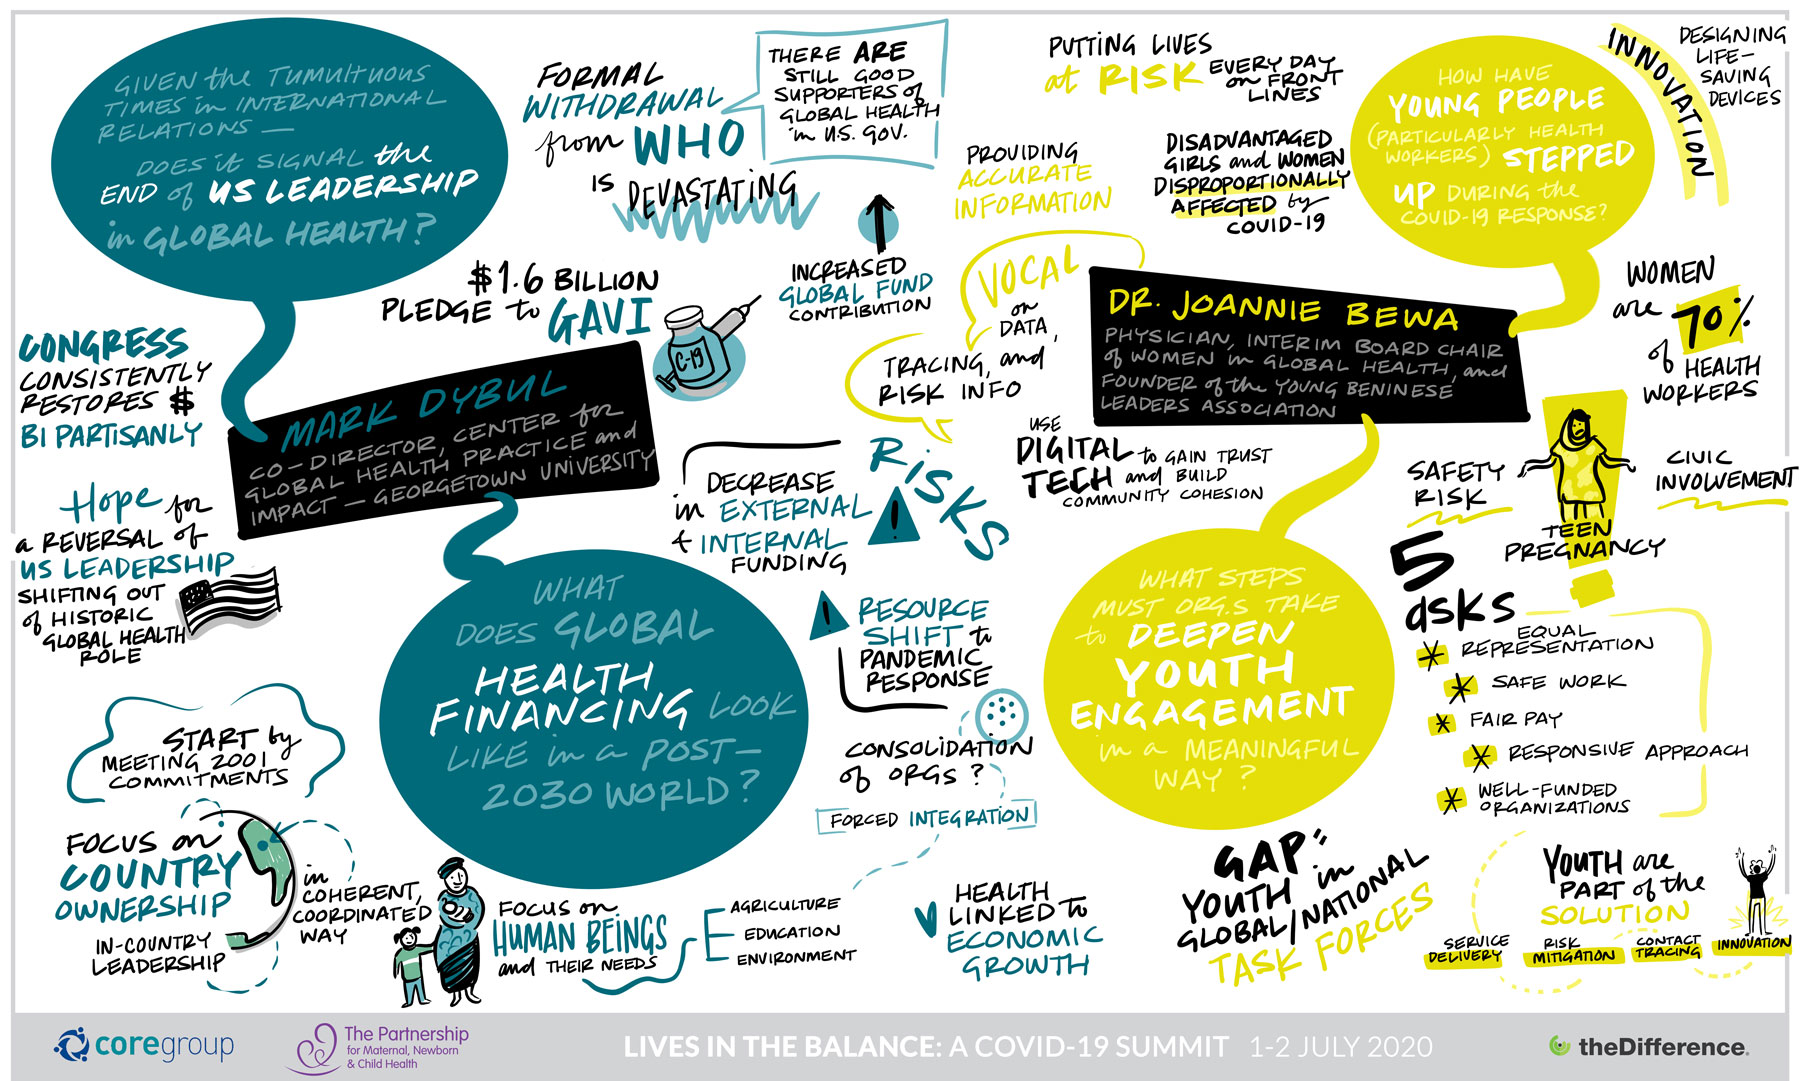 GIVEN the TUMULTUOUS
TIMES in INTERNATIONAL
RELATIONS —
DOES it SIGNAL the
END of US LEADERSHIP
in GLOBAL HEALTH?
FORMAL
WITHDRAWAL
from WHO
is DEVASTATING
THERE ARE
STILL GOOD
SUPPORTERS of
GLOBAL HEALTH
in U.S. GOV.
$1.6 BILLION
PLEDGE to
GAVI
C-19
INCREASED
GLOBAL FUND
CONTRIBUTION
CONGRESS
CONSISTENTLY
RESTORES $
BIPARTISANLY
MARK DYBUL
CO-DIRECTOR, CENTER for
GLOBAL HEALTH PRACTICE and
IMPACT — GEORGETOWN UNIVERSITY
Hope for
a REVERSAL of
US LEADERSHIP
SHIFTING OUT
of HISTORIC
GLOBAL HEALTH
ROLE
WHAT
DOES GLOBAL
HEALTH
FINANCING LOOK
LIKE in a POST-
2030 WORLD?
DECREASE
in EXTERNAL
+ INTERNAL
FUNDING
RISKS
!
!
RESOURCE
SHIFT to
PANDEMIC
RESPONSE
CONSOLIDATION
of ORGS?
FORCED INTEGRATION
START by
MEETING 2001
COMMITMENTS
FOCUS on
COUNTRY
OWNERSHIP
IN-COUNTRY
LEADERSHIP
in
COHERENT,
COORDINATED
WAY
FOCUS on
HUMAN BEINGS
and THEIR NEEDS
AGRICULTURE
EDUCATION
ENVIRONMENT
HEALTH
LINKED to
ECONOMIC
GROWTH
PUTTING LIVES
at RISK EVERY DAY
on FRONT
LINES
PROVIDING
ACCURATE
INFORMATION
DISADVANTAGED
GIRLS and WOMEN
DISPROPORTIONALLY
AFFECTED by
COVID-19
HOW HAVE
YOUNG PEOPLE
(PARTICULARLY HEALTH
WORKERS) STEPPED
UP DURING the
COVID-19 RESPONSE?
INNOVATION
DESIGNING
LIFE-
SAVING
DEVICES
VOCAL
on
DATA,
TRACING, and
RISK INFO
DR. JOANNIE BEWA
PHYSICIAN, INTERIM BOARD CHAIR
of WOMEN in GLOBAL HEALTH, and
FOUNDER of the YOUNG BENINESE
LEADERS ASSOCIATION
WOMEN
are 70%
of HEALTH
WORKERS
USE
DIGITAL
TECH to GAIN TRUST
and BUILD
COMMUNITY COHESION
SAFETY
RISK
TEEN
PREGNANCY
CIVIC
INVOLVEMENT
WHAT STEPS
MUST ORG.S TAKE
to DEEPEN
YOUTH
ENGAGEMENT
in a MEANINGFUL
WAY?
5
asks
* EQUAL
REPRESENTATION
* SAFE WORK
* FAIR PAY
* RESPONSIVE APPROACH
* WELL-FUNDED
ORGANIZATIONS
GAP:
YOUTH in
GLOBAL/NATIONAL
TASK FORCES
YOUTH are
PART of the
SOLUTION
SERVICE
DELIVERY
RISK
MITIGATION
CONTACT
TRACING
INNOVATION
coregroup
The Partnership
for Maternal, Newborn
& Child Health
LIVES IN THE BALANCE: A COVID-19 SUMMIT 1-2 JULY 2020
theDifference.